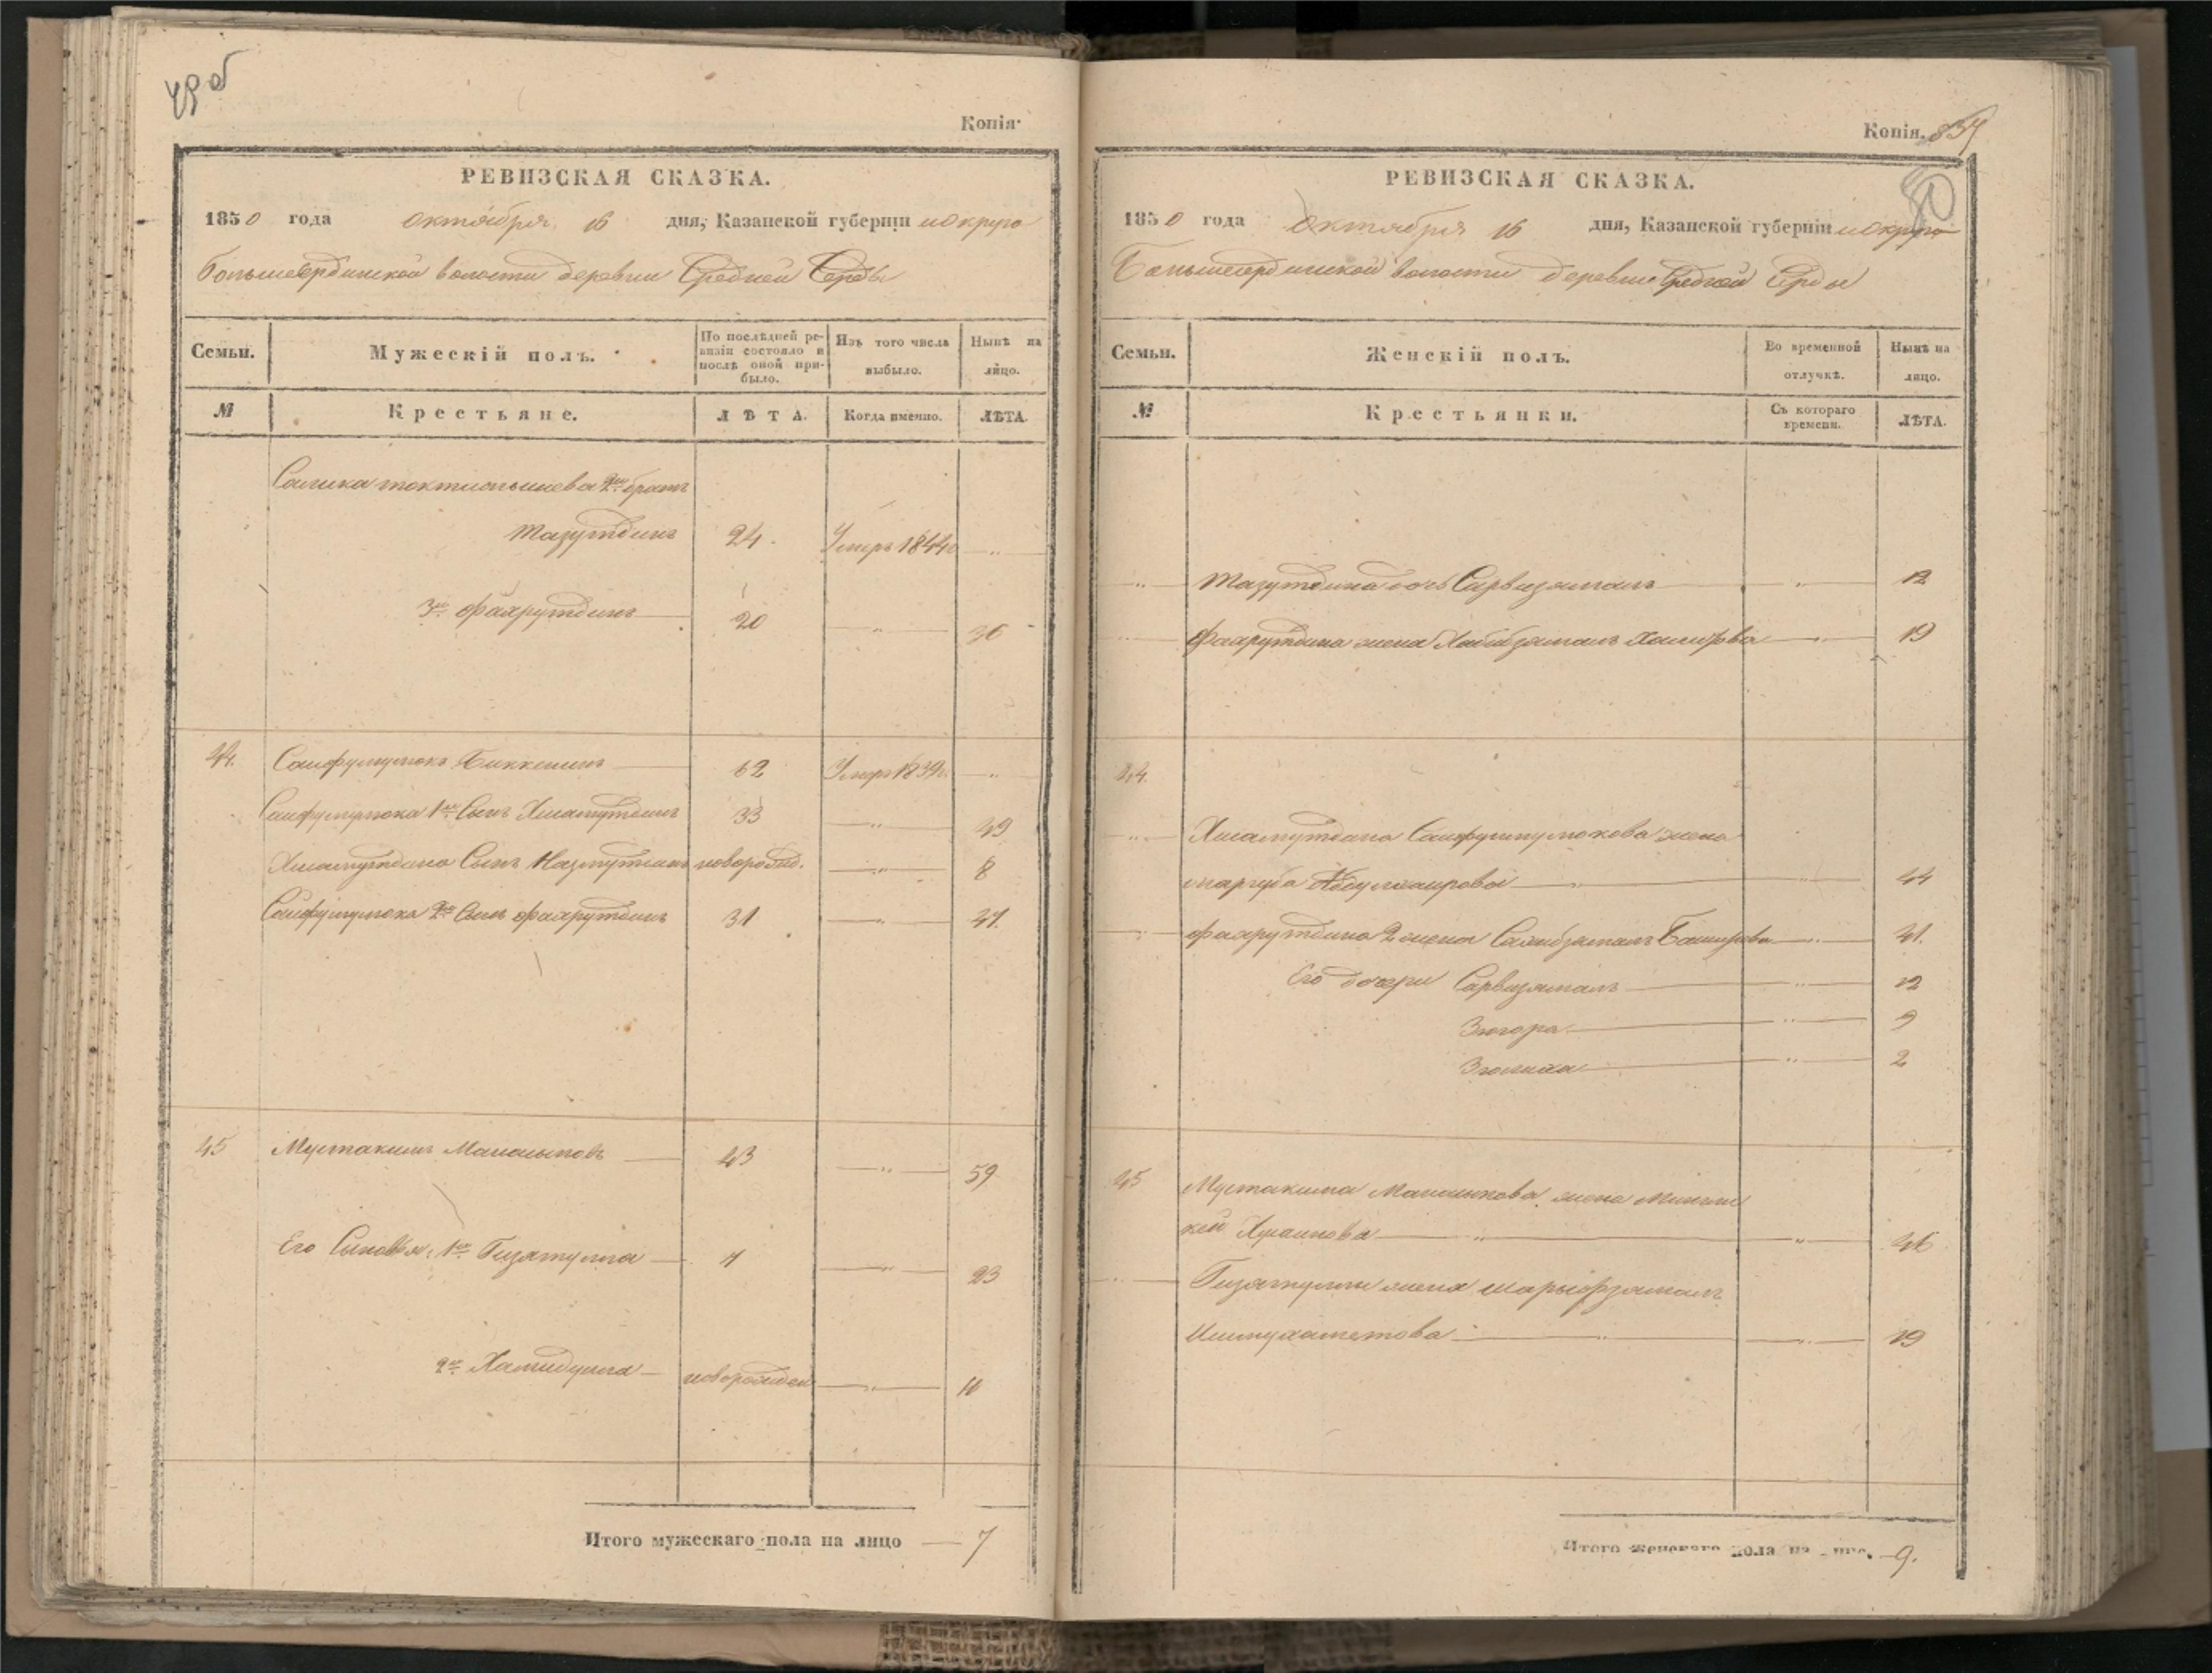 49об
Копія.
РЕВИЗСКАЯ СКАЗКА.
1850 года октября 16 дня, Казанской губерніи и округа
Большесердинской волости деревни Средней Серды
Семьи. Мужескій полъ. По послѣдней ревизіи состояло и послѣ оной прибыло. Изъ того числа выбыло. Нынѣ на лицо.
№ Крестьяне. ЛѢТА. Когда именно. ЛѢТА.
2й братъ
Тазутдинъ 24. Умеръ 1844 „
3й Фахрутдинъ 20 „ 36
44. Сайфулмулюкъ Биккенинъ 62 Умеръ 1839 „
Сайфулмулюка 1й Сынъ Хисамутдинъ 33 „ 49
Хисамутдина Сынъ Назмутдинъ новорожд. „ 8
Сайфулмулюка 2й Сынъ Фахрутдинъ 31 „ 47.
45 Мустакимъ 43 „ 59
Его Сыновья, 1й Гизятулла 7 „ 23
2й Хамидулла новорожден „ 11
Итого мужескаго пола на лицо 7
Копія. 837
50
РЕВИЗСКАЯ СКАЗКА.
1850 года Октября 16 дня, Казанской губерніи и округа
Большесердинской волости деревни Средней Серды
Семьи. Женскій полъ. Во временной отлучкѣ. Нынѣ на лицо.
№ Крестьянки. Съ котораго времени. ЛѢТА.
„ Тазутдина дочь Сарвизямалъ „ 12
„ Фахрутдина жена Хабибзямалъ „ 19
44.
„ Хисамутдина Сайфулмулюкова жена
Маргуба „ „ 44
„ Фахрутдина 2 жена Сахибзямалъ Баширова „ 41.
Его дочери Сарвизямалъ „ 12
Зюгора „ 9
Зюлиха „ 2
45 Мустакима жена
„ „ 46
„ Гизятуллы жена Шарыфзямалъ
Ишмухаметова „ „ 19
Итого женскаго пола на лицо. 9.